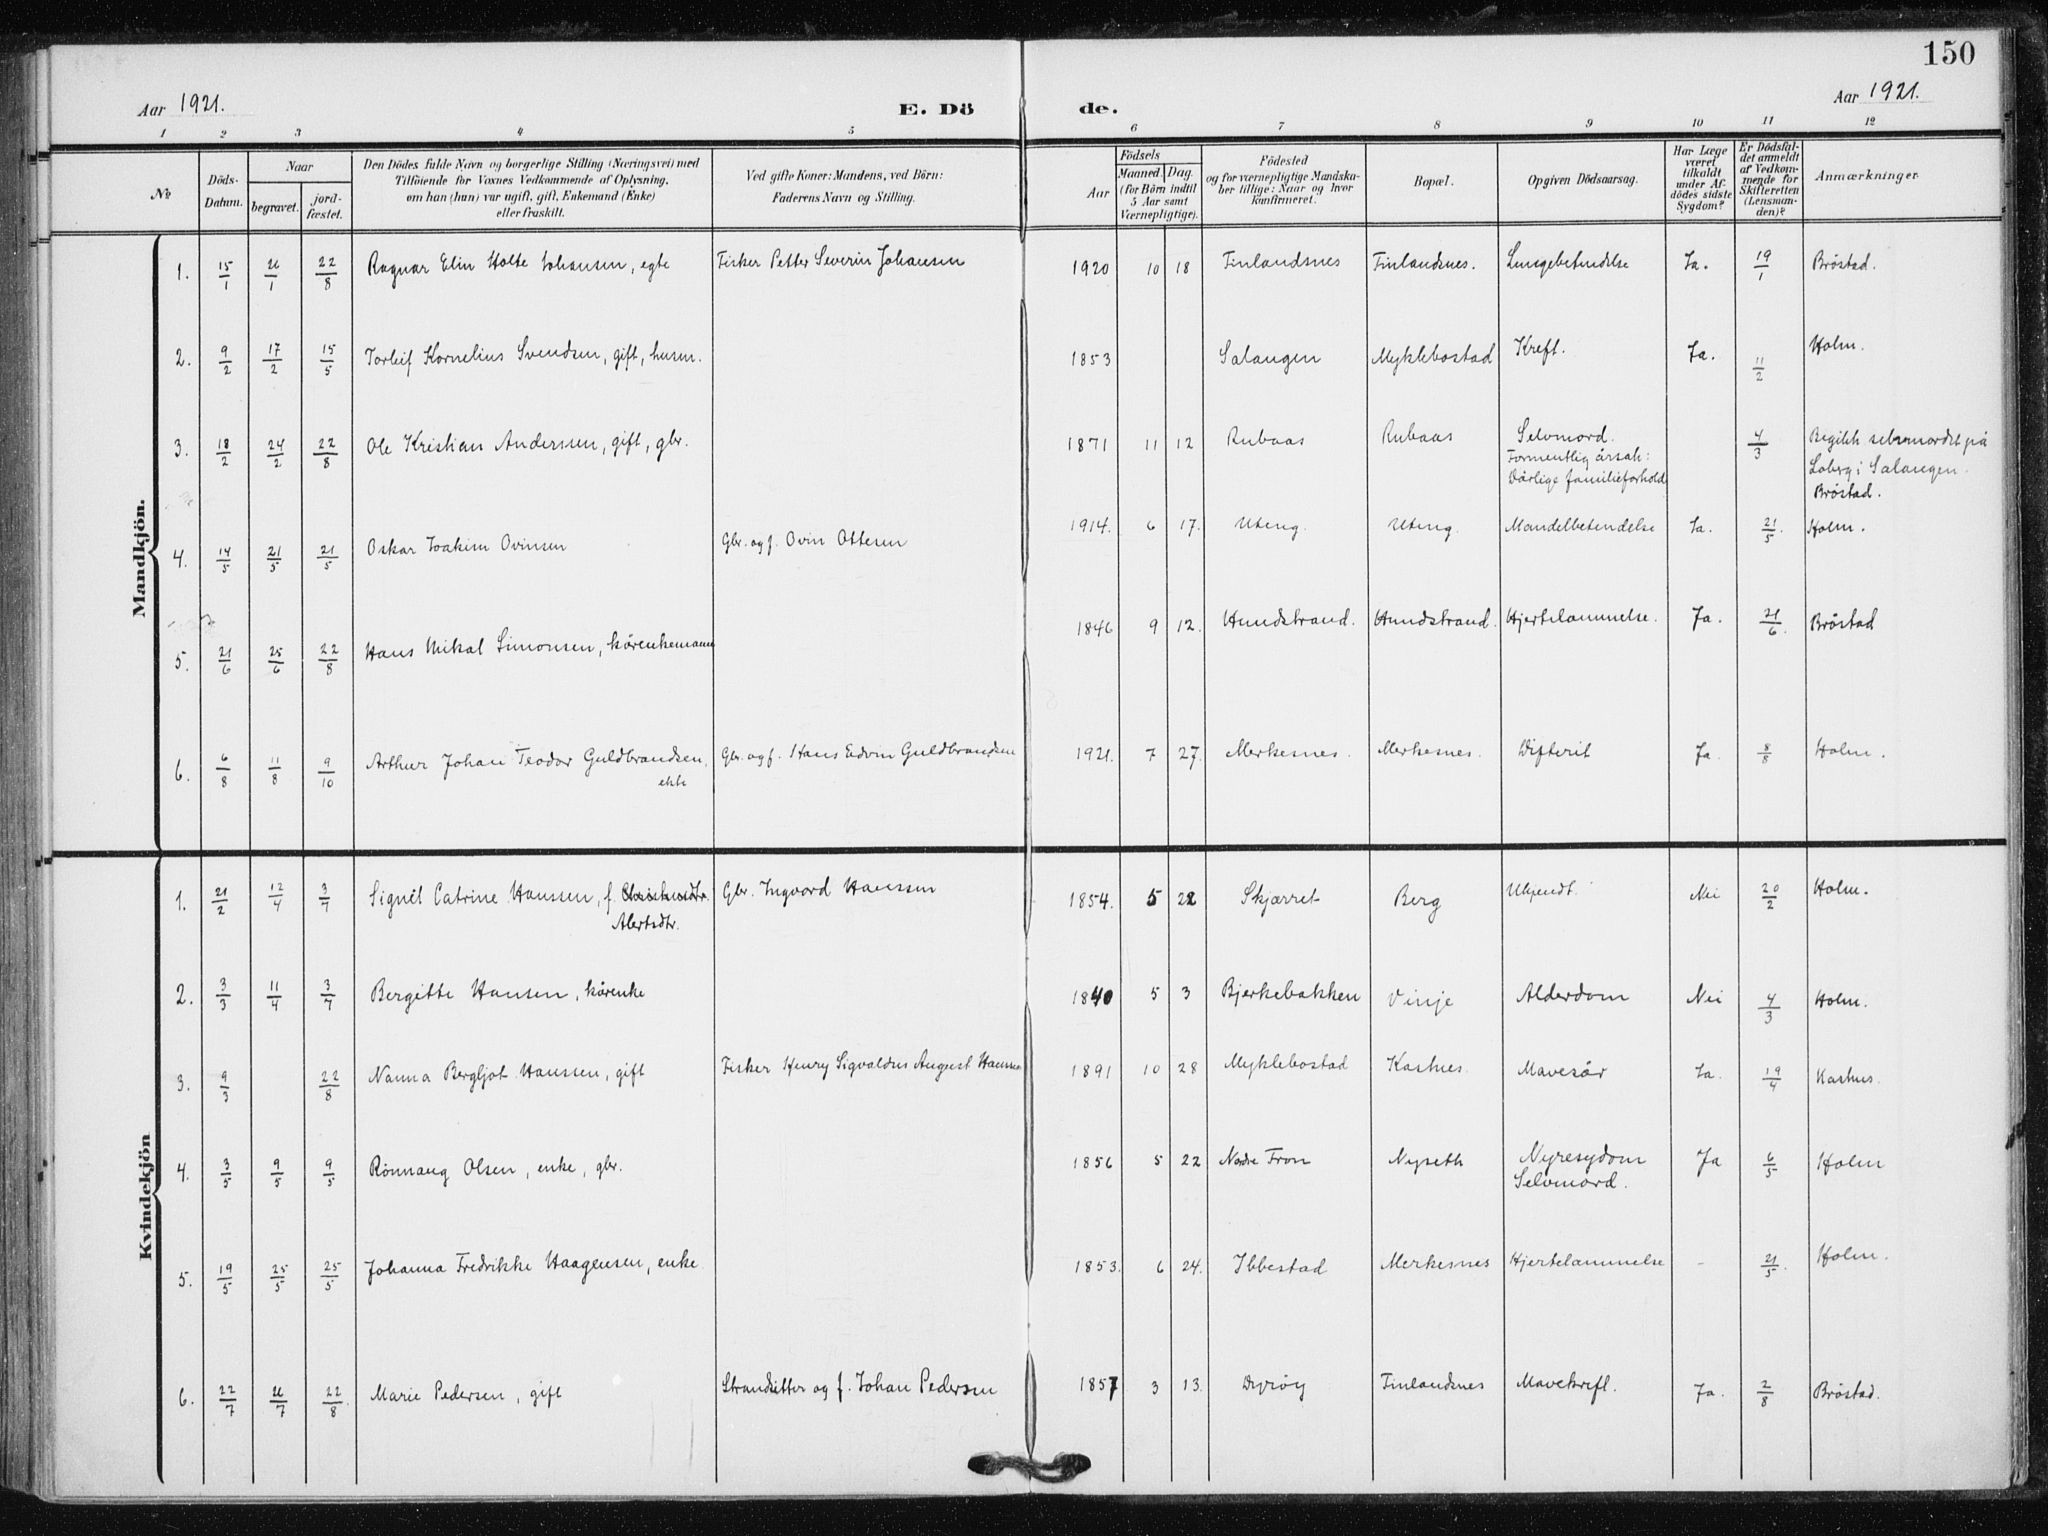 150
Aar 1921.
E. Dö de.
Aar 1921.
1 2 3 4 5 6 7 8 9 10 11 12
No
Döds-Datum.
Naar
begravet.
jord-fæstet.
Den Dödes fulde Navn og borgerlige Stilling (Næringsvei) med
Tilföiende for Voxnes Vedkommende af Oplysning,
om han (hun) var ugift, gift, Enkemand (Enke)
eller fraskilt.
Ved gifte Koner: Mandens, ved Börn:
Faderens Navn og Stilling.
Födsels
Aar
Maaned. Dag.
(for Börn indtil
5 Aar samt
Værnepligtige).
Födested
og for værnepligtige Mandska-
ber tillige: Naar og hvor
konfirmeret.
Bopæl.
Opgiven Dödsaarsag.
Har Læge
været
tilkaldt
under Af-
dödes sidste
Sygdom?
Er Dödsfal-
det anmeldt
af Vedkom-
mende for
Skifteretten
(Lensman-
den)?
Anmærkninger
Mandkjön.
1. 15/1 26/1 22/8 Ragnar Elin Holte Johansen, egte Fisker Petter Severin Johansen 1920 10 18 Finlandsnes Finlandsnes. Lungebetendelse Ja. 19/1 Bröstad.
2. 9/2 17/2 15/5 Torleif Kornelius Svendsen, gift, husm. 1853 Salangen Myklebostad Kreft. Ja. 11/2 Holm.
3. 18/2 24/2 22/8 Ole Kristian Anderssen, gift, gbr. 1871 11 12 Rubaas Rubaas Selvmord. 4/3 Begikk selvmordet på
Formentlig årsak: Loberg i Salangen.
Dårlige familieforhold Bröstad.
4. 14/5 21/5 21/5 Oskar Joakim Ovinsen Gbr. og f. Ovin Ottesen 1914. 6 17. Uteng. Uteng. Mandelbetendelse Ja. 21/5. Holm.
5. 21/6 25/6 22/8 Hans Mikal Simonsen, kårenkemann 1846 9 12. Hundstrand. Hundstrand. Hjertelammelse. Ja. 21/6. Bröstad
6. 6/8 11/8 9/10 Arthur Johan Teodor Guldbrandsen, Gbr. og f. Hans Edvin Guldbrandsen 1921. 7 27. Merkesnes. Merkesnes. Difterit Ja. 8/8 Holm.
ekte
Kvindekjön
1. 21/2 12/4 3/7 Signél Catrine Hanssen, f. Gbr. Ingvard Hanssen 1854. 5 22 Skjærret Berg Ukjendt. Nei 20/2 Holm.
Alertsdtr.
2. 3/3 11/4 3/7 Bergitte Hansen, kårenke 1840 5 3 Bjerkebakken Vinje Alderdom Nei 4/3 Holm.
3. 9/3 22/8 Nanna Bergljot Hanssen, gift Fisker Henry Sigvaldus August Hanssen 1891 10 28 Myklebostad Kasnes. Mavesår Ja. 19/4 Kasnes.
4. 3/5 9/5 9/5 Rönnaug Olsen, enke, gbr. 1856 5 22 Nodre Fron Nyseth Nyresydom Ja 6/5 Holm
Selvmord.
5. 19/5 25/5 25/5 Johanna Fredrikke Haagensen, enke 1853. 6 24. Ibbestad Merkesnes Hjertelammelse - 21/5. Holm.
6. 22/7 26/7 22/8 Marie Pedersen, gift Strandsitter og f. Johan Pedersen 1857 3 13. Dyröy Finlandsnes Mavekreft. Ja. 2/8 Bröstad.